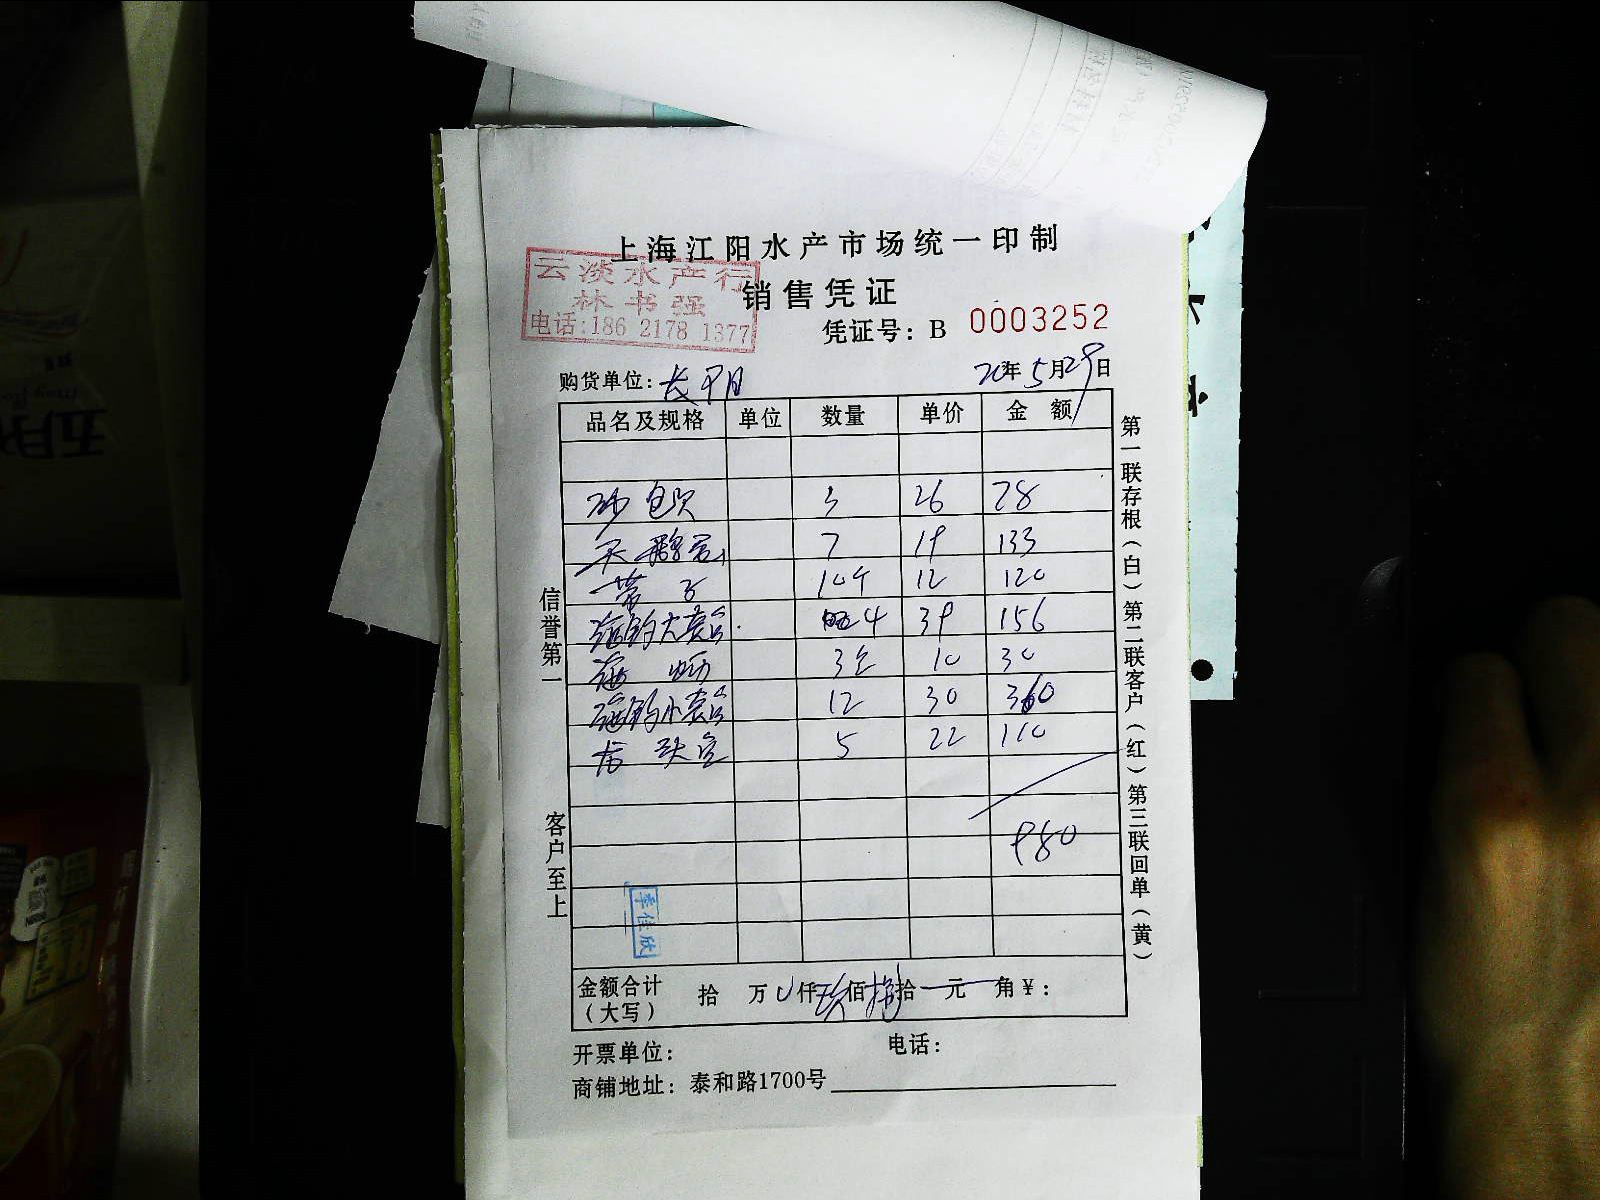 上海江阳水产市场统一印制
云淡水产行
林书强
电话:186 2178 1377
销售凭证
凭证号: B 0003252
购货单位:
20年5月29日
品名及规格 单位 数量 单价 金额
3 26 78
天鹅蛋 7 19 133
带子 10个 12 120
4 39 156
3 10 30
12 30 360
5 22 110
980
季佳欣
金额合计(大写) 拾 万 仟 玖 佰 捌 拾 元 角 ¥:
开票单位: 电话:
商铺地址: 泰和路1700号
信誉第一 客户至上
第一联存根(白)第二联客户(红)第三联回单(黄)